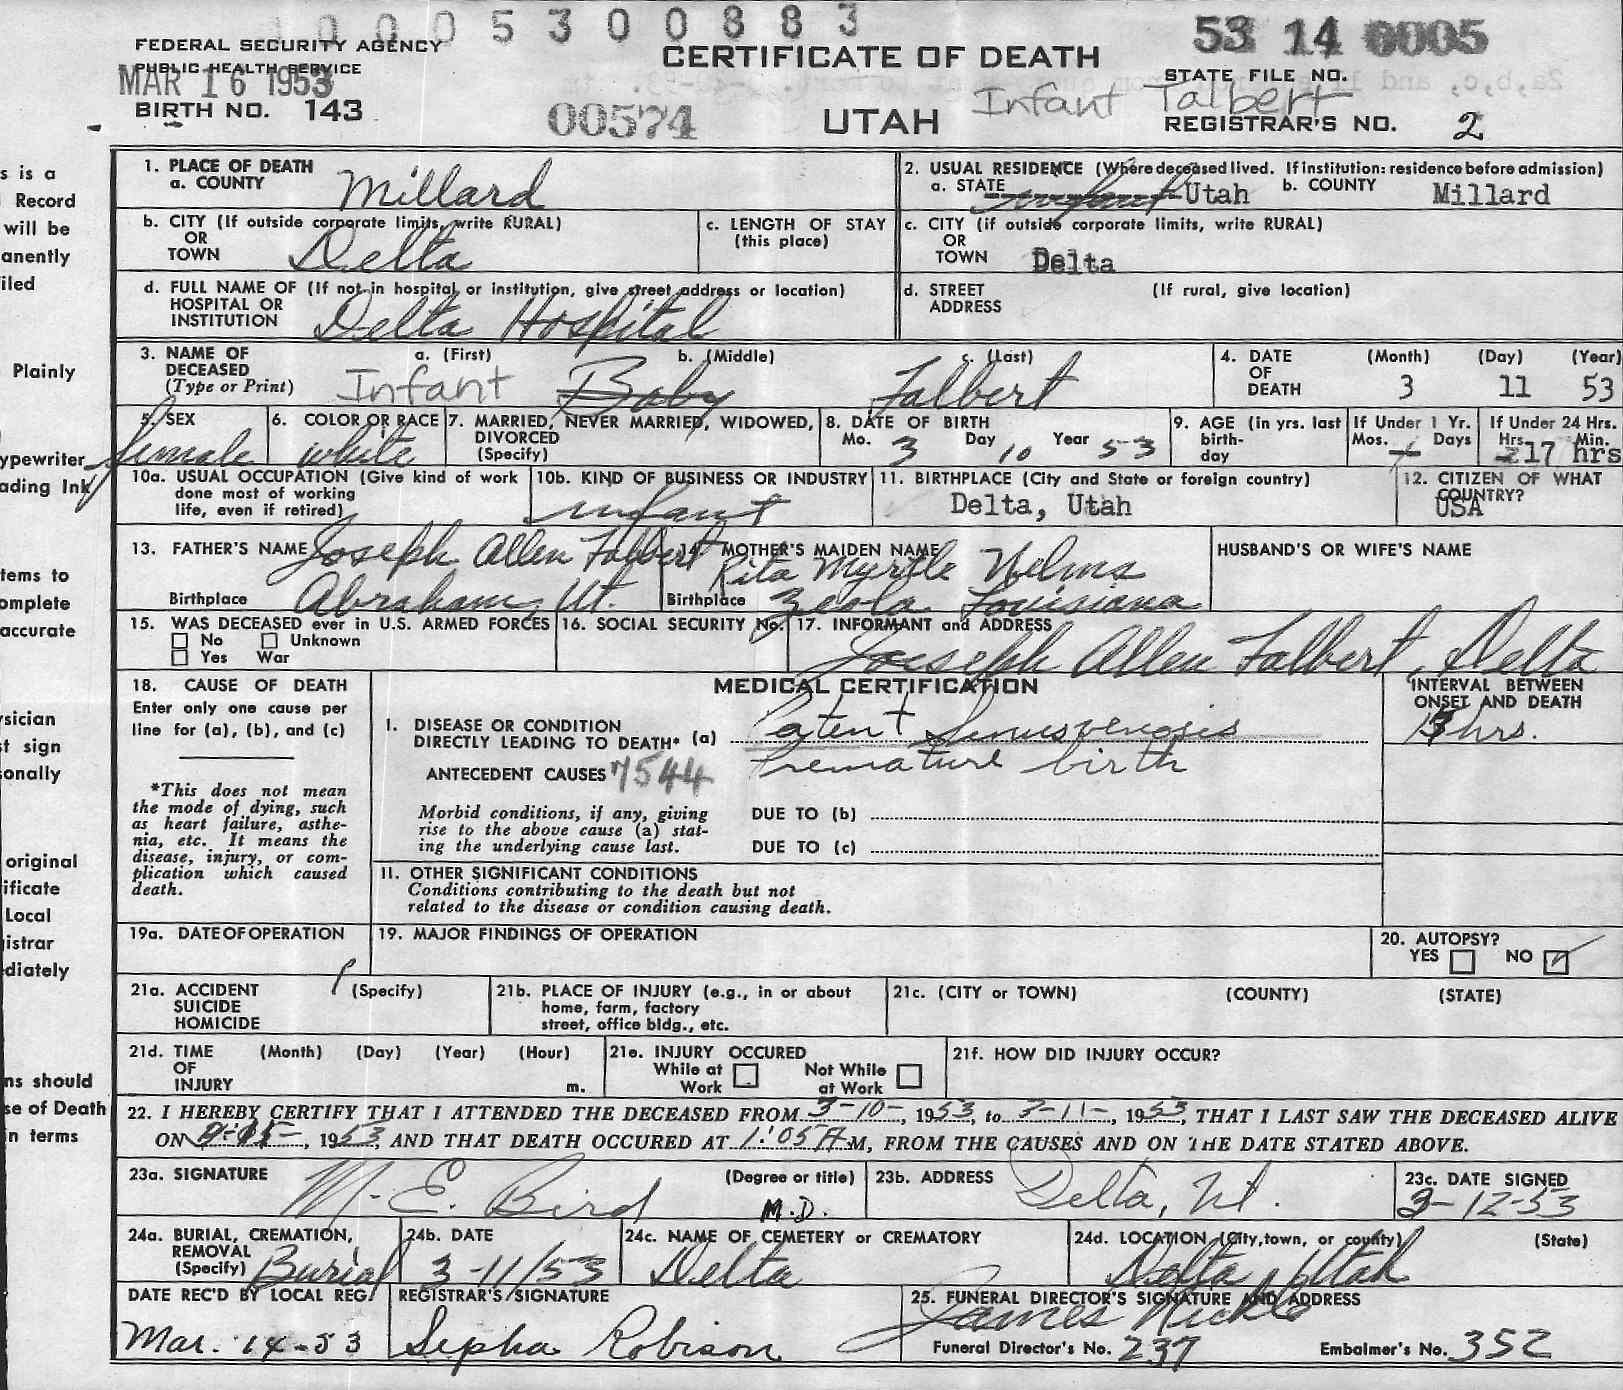 1 0 0 0 5 3 0 0 8 8 3
FEDERAL SECURITY AGENCY
PUBLIC HEALTH SERVICE
MAR 16 1953
BIRTH NO. 143
00574
CERTIFICATE OF DEATH
UTAH
53 14 0005
STATE FILE NO.
Infant Talbert
REGISTRAR'S NO. 2
s is a
Record
will be
anently
iled
Plainly
ypewriter
ading Ink
tems to
omplete
accurate
sician
t sign
onally
original
ificate
Local
istrar
diately
ns should
se of Death
n terms
1. PLACE OF DEATH
a. COUNTY Millard
2. USUAL RESIDENCE (Where deceased lived. If institution: residence before admission)
a. STATE Utah b. COUNTY Millard
b. CITY (If outside corporate limits, write RURAL)
OR
TOWN Delta
c. LENGTH OF STAY
(this place)
c. CITY (if outside corporate limits, write RURAL)
OR
TOWN Delta
d. FULL NAME OF (If not in hospital or institution, give street address or location)
HOSPITAL OR
INSTITUTION Delta Hospital
d. STREET (If rural, give location)
ADDRESS
3. NAME OF a. (First) b. (Middle) c. (Last)
DECEASED
(Type or Print) Infant Baby Talbert
4. DATE (Month) (Day) (Year)
OF
DEATH 3 11 53
5. SEX
female
6. COLOR OR RACE
white
7. MARRIED, NEVER MARRIED, WIDOWED,
DIVORCED
(Specify)
8. DATE OF BIRTH
Mo. 3 Day 10 Year 53
9. AGE (in yrs. last
birth-
day
If Under 1 Yr.
Mos. Days
If Under 24 Hrs.
Hrs. Min.
17 hrs
10a. USUAL OCCUPATION (Give kind of work
done most of working
life, even if retired)
10b. KIND OF BUSINESS OR INDUSTRY
infant
11. BIRTHPLACE (City and State or foreign country)
Delta, Utah
12. CITIZEN OF WHAT
COUNTRY?
USA
13. FATHER'S NAME Joseph Allen Talbert
Birthplace Abraham, Ut.
14. MOTHER'S MAIDEN NAME
Rita Myrtle Nelms
Birthplace Zeola Louisiana
HUSBAND'S OR WIFE'S NAME
15. WAS DECEASED ever in U.S. ARMED FORCES
No Unknown
Yes War
16. SOCIAL SECURITY No.
17. INFORMANT and ADDRESS
Joseph Allen Talbert, Delta
18. CAUSE OF DEATH
Enter only one cause per
line for (a), (b), and (c)
*This does not mean
the mode of dying, such
as heart failure, asthe-
nia, etc. It means the
disease, injury, or com-
plication which caused
death.
MEDICAL CERTIFICATION
INTERVAL BETWEEN
ONSET AND DEATH
I. DISEASE OR CONDITION
DIRECTLY LEADING TO DEATH* (a) Patent Sinusvenosis
hrs.
ANTECEDENT CAUSES 7544 Premature birth
Morbid conditions, if any, giving
rise to the above cause (a) stat-
ing the underlying cause last.
DUE TO (b)
DUE TO (c)
II. OTHER SIGNIFICANT CONDITIONS
Conditions contributing to the death but not
related to the disease or condition causing death.
19a. DATE OF OPERATION
19. MAJOR FINDINGS OF OPERATION
20. AUTOPSY?
YES NO ✓
21a. ACCIDENT (Specify)
SUICIDE
HOMICIDE
21b. PLACE OF INJURY (e.g., in or about
home, farm, factory
street, office bldg., etc.
21c. (CITY or TOWN) (COUNTY) (STATE)
21d. TIME (Month) (Day) (Year) (Hour)
OF
INJURY m.
21e. INJURY OCCURED
While at Not While
Work at Work
21f. HOW DID INJURY OCCUR?
22. I HEREBY CERTIFY THAT I ATTENDED THE DECEASED FROM 3-10-, 1953, to 3-11-, 1953, THAT I LAST SAW THE DECEASED ALIVE
ON , 1953, AND THAT DEATH OCCURED AT 1:05 A M, FROM THE CAUSES AND ON THE DATE STATED ABOVE.
23a. SIGNATURE (Degree or title)
M. E. Bird M.D.
23b. ADDRESS
Delta, Ut.
23c. DATE SIGNED
3-12-53
24a. BURIAL, CREMATION,
REMOVAL
(Specify) Burial
24b. DATE
3-11/53
24c. NAME OF CEMETERY or CREMATORY
Delta
24d. LOCATION (City, town, or county) (State)
Delta, Utah
DATE REC'D BY LOCAL REG.
Mar. 14-53
REGISTRAR'S SIGNATURE
Sepha Robison
25. FUNERAL DIRECTOR'S SIGNATURE AND ADDRESS
James Nickle
Funeral Director's No. 237 Embalmer's No. 352